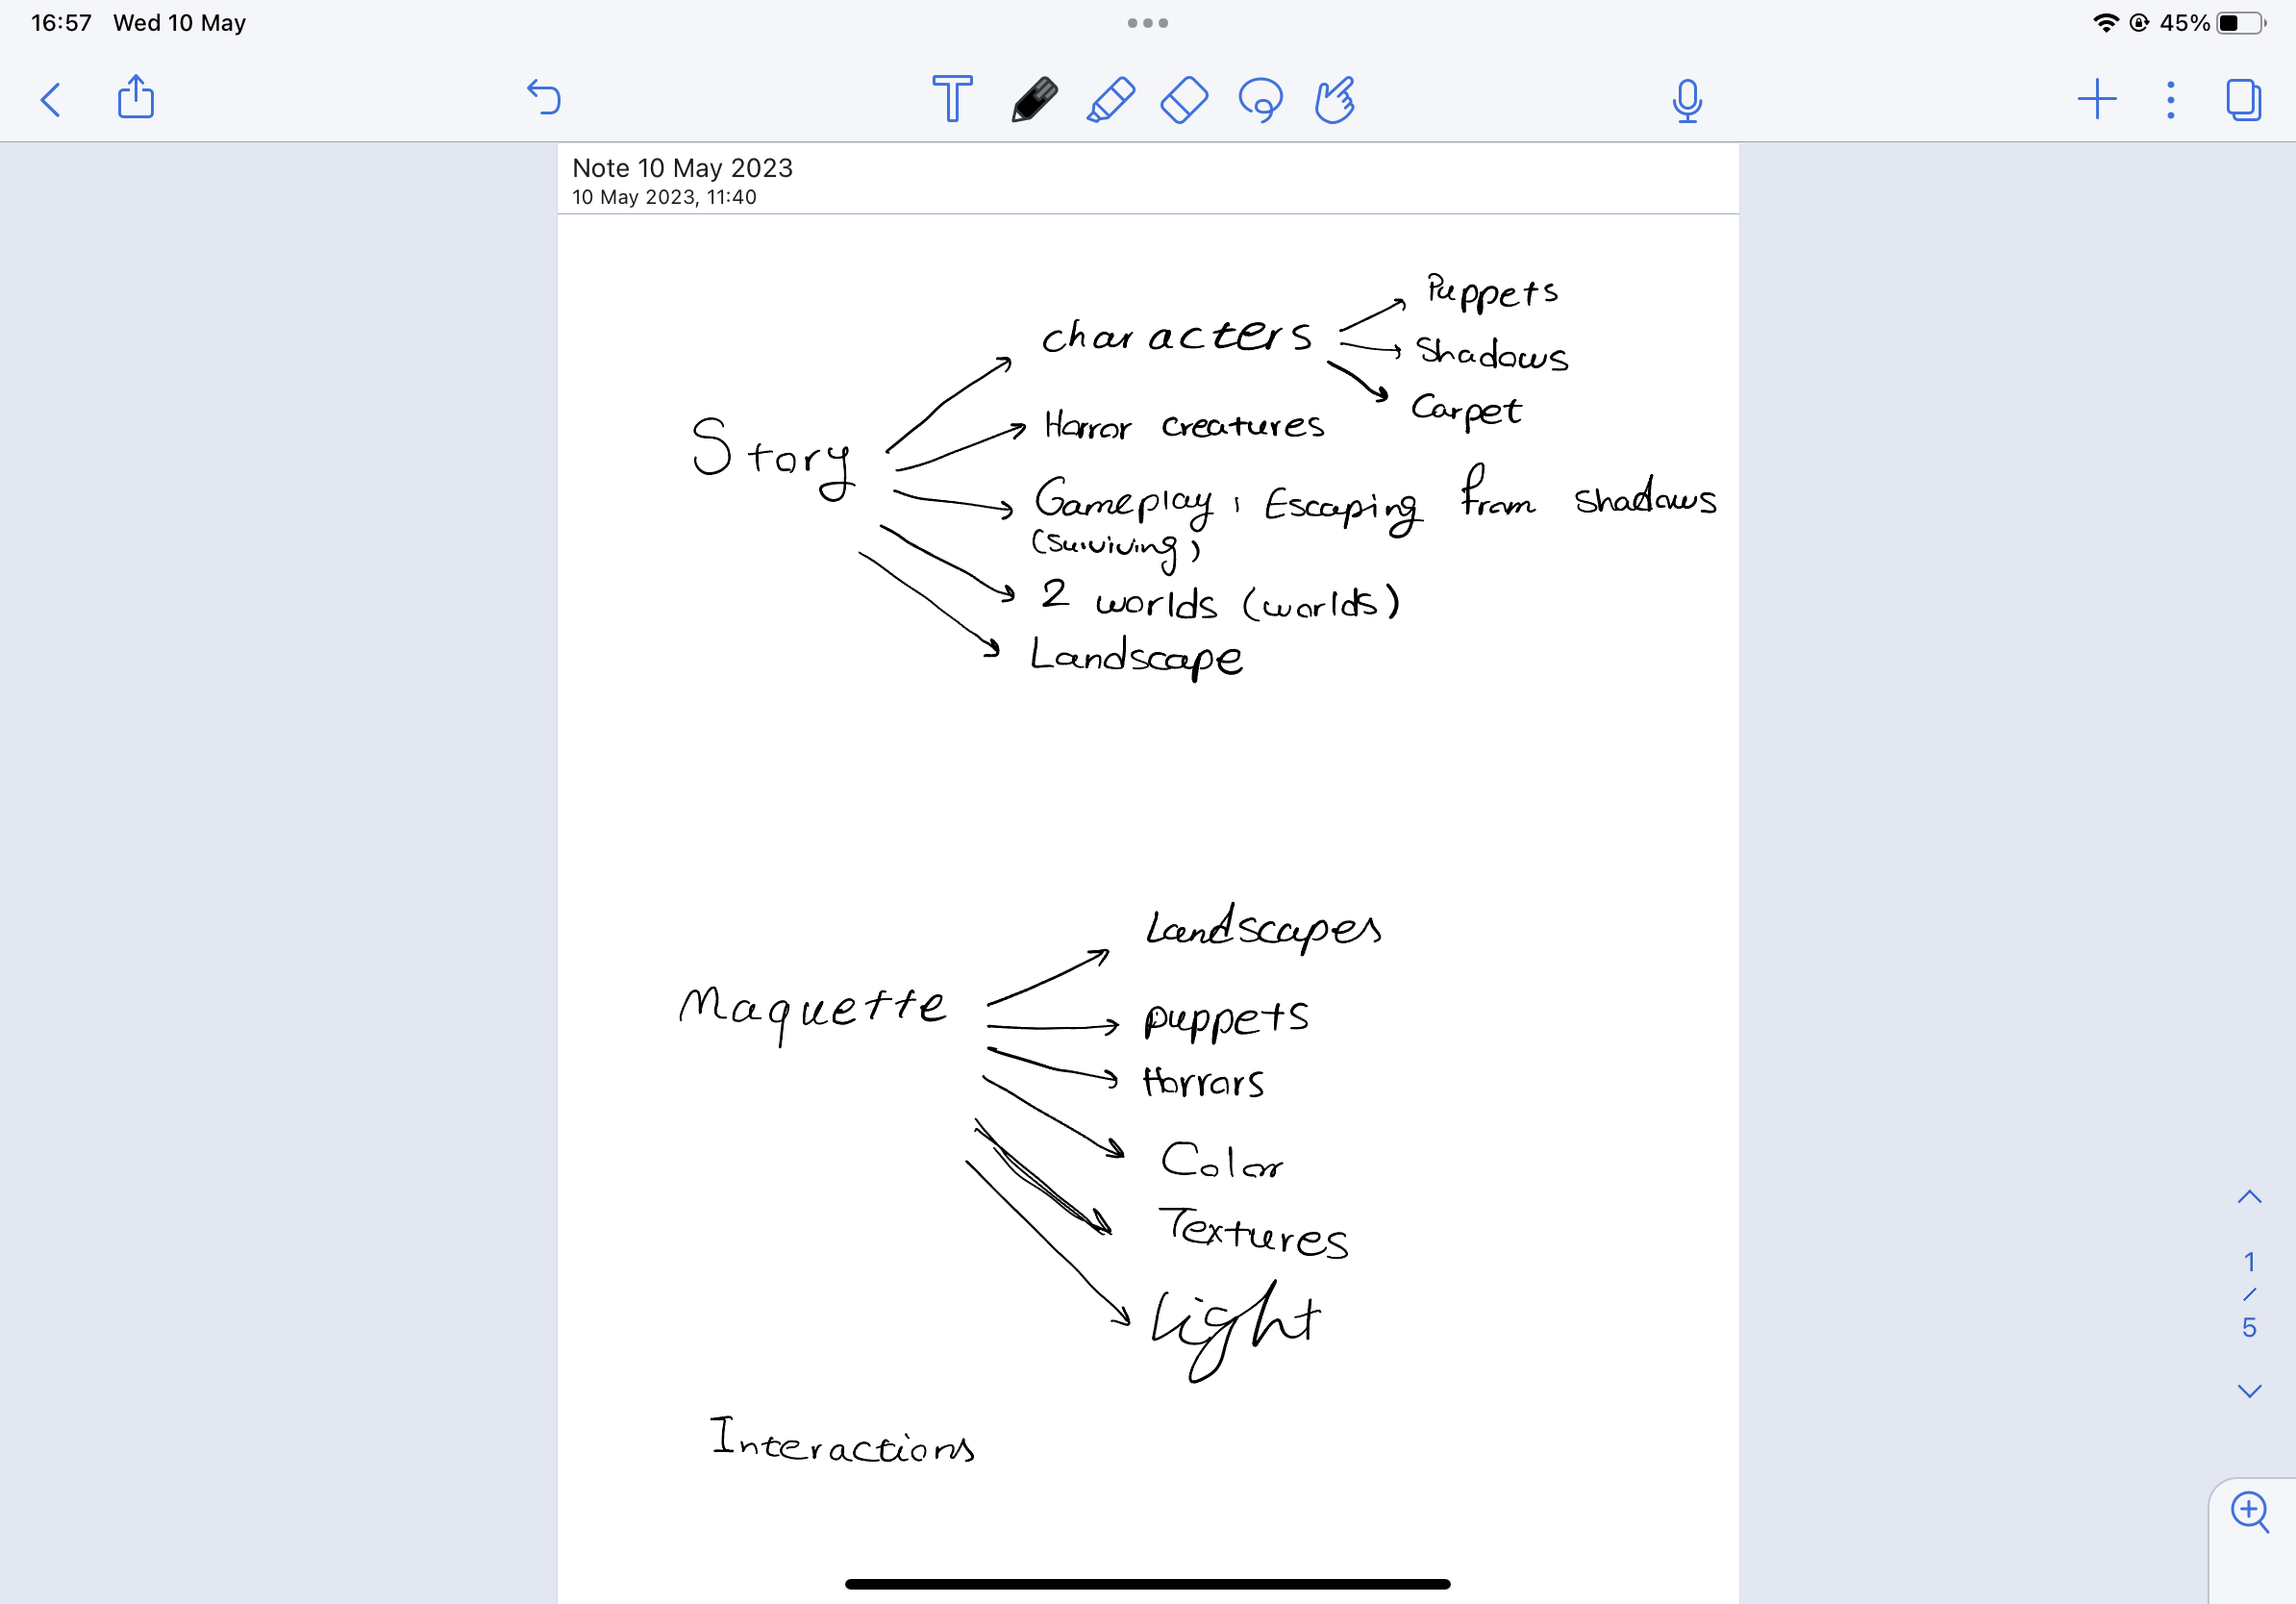 16:57 Wed 10 May
45%
Note 10 May 2023
10 May 2023, 11:40
Story
characters
Puppets
Shadows
Carpet
Horror creatures
Gameplay, Escaping from shadows
(surviving)
2 worlds (worlds)
Landscape
Maquette
Landscapes
puppets
Horrors
Color
Textures
Light
Interactions
1
/
5